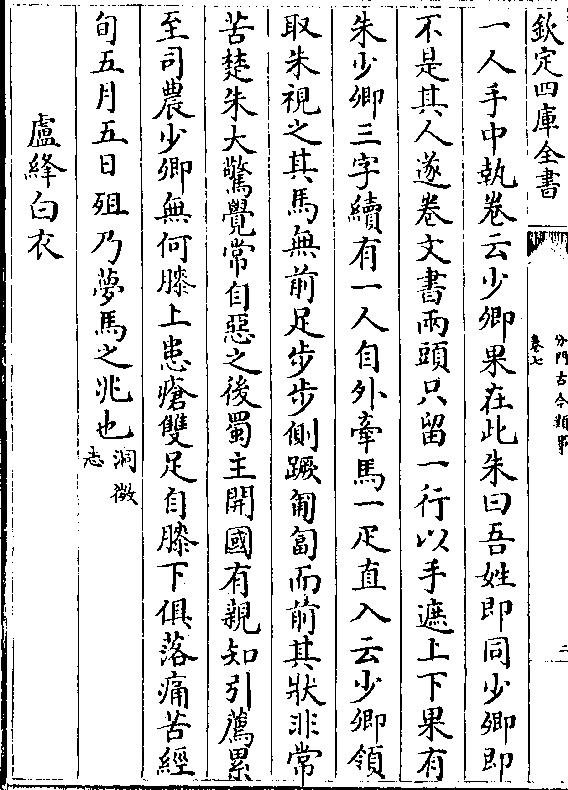 欽定四庫全書
分門古今類事
卷七
二
一人手中執卷云少卿果在此朱曰吾姓即同少卿即
不是其人遂卷文書兩頭只留一行以手遮上下果有
朱少卿三字續有一人自外牽馬一疋直入云少卿領
取朱視之其馬無前足步步側蹶匍匐而前其狀非常
苦楚朱大驚覺常自惡之後蜀主開國有親知引薦累
至司農少卿無何膝上患瘡雙足自膝下俱落痛苦經
旬五月五日殂乃夢馬之兆也洞微志
盧絳白衣